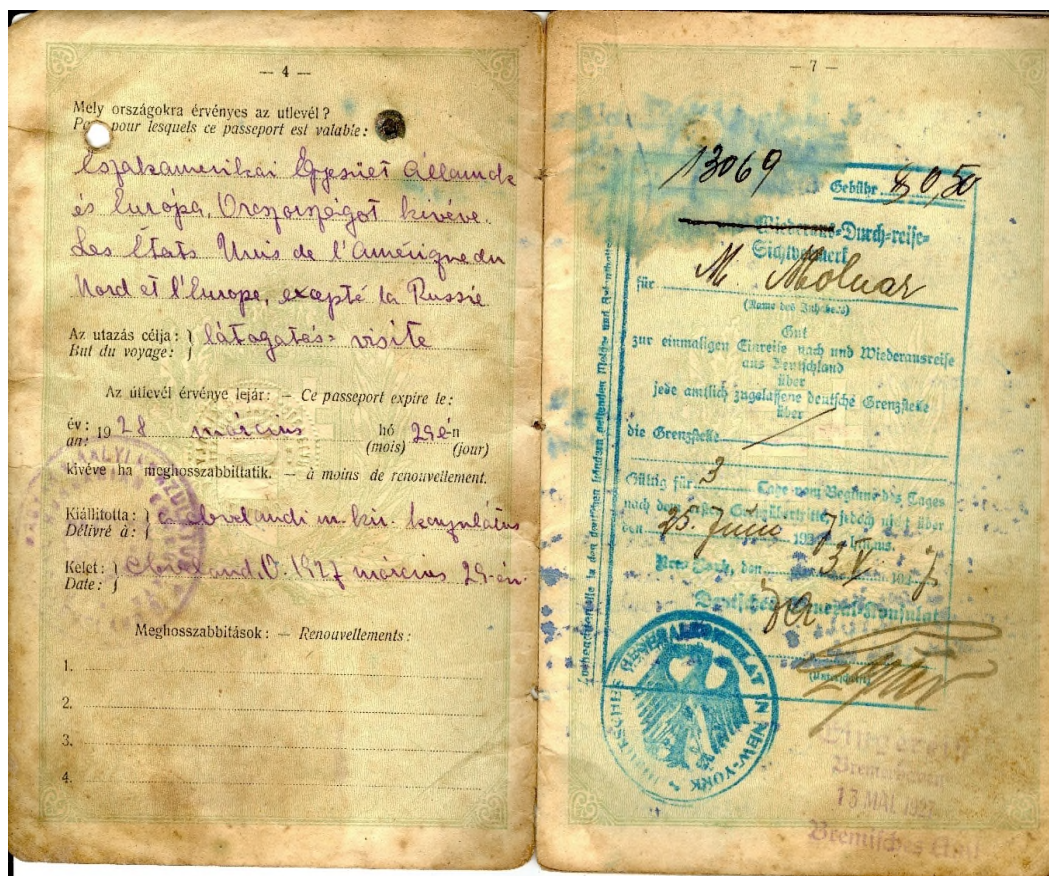 — 4 —
Mely országokra érvényes az utlevél?
pour lesquels ce passeport est valable:
Északamerikai Egyesült Államok
és Európa, Oroszországot kivéve.
Les États Unis de l'Amérique du
Nord et l'Europe, excepté la Russie
Az utazás célja: } látogatás = visite
But du voyage: }
Az útlevél érvénye lejár: — Ce passeport expire le:
év: 1928 március hó 29-én
an: (mois) (jour)
kivéve ha meghosszabbíttatik. — à moins de renouvellement.
Kiállította: } a clevelandi m. kir. konzulátus
Délivré à: }
Kelet: } Cleveland, O. 1927 március 29-én.
Date: }
Meghosszabbítások: — Renouvellements:
1.
2.
3.
4.
— 7 —
13069
Gebühr $ 0 50
Durch-reise-
Sichtvermerk
für M. Molnar
(Name des Inhabers)
Gut
zur einmaligen Einreise nach und Wiederausreise
aus Deutschland
über
jede amtlich zugelassene deutsche Grenzstelle
über
die Grenzstelle
Gültig für 3 Tage vom Beginne des Tages
nach dem ersten Grenzübertritt, jedoch nicht über
den 25. Juni 1927 hinaus.
New-York, den 3. V. 1927
Deutsches Generalkonsulat
(Unterschrift)
DEUTSCHES GENERALKONSULAT IN NEW-YORK
Bremerhaven
13 MAI 1927
Bremisches